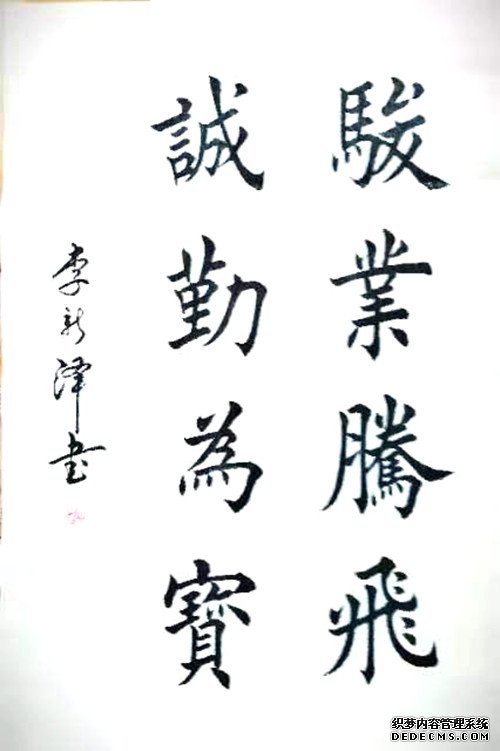 駿業騰飛
誠勤為寶
李新泽书
织梦内容管理系统
DEDECMS.COM